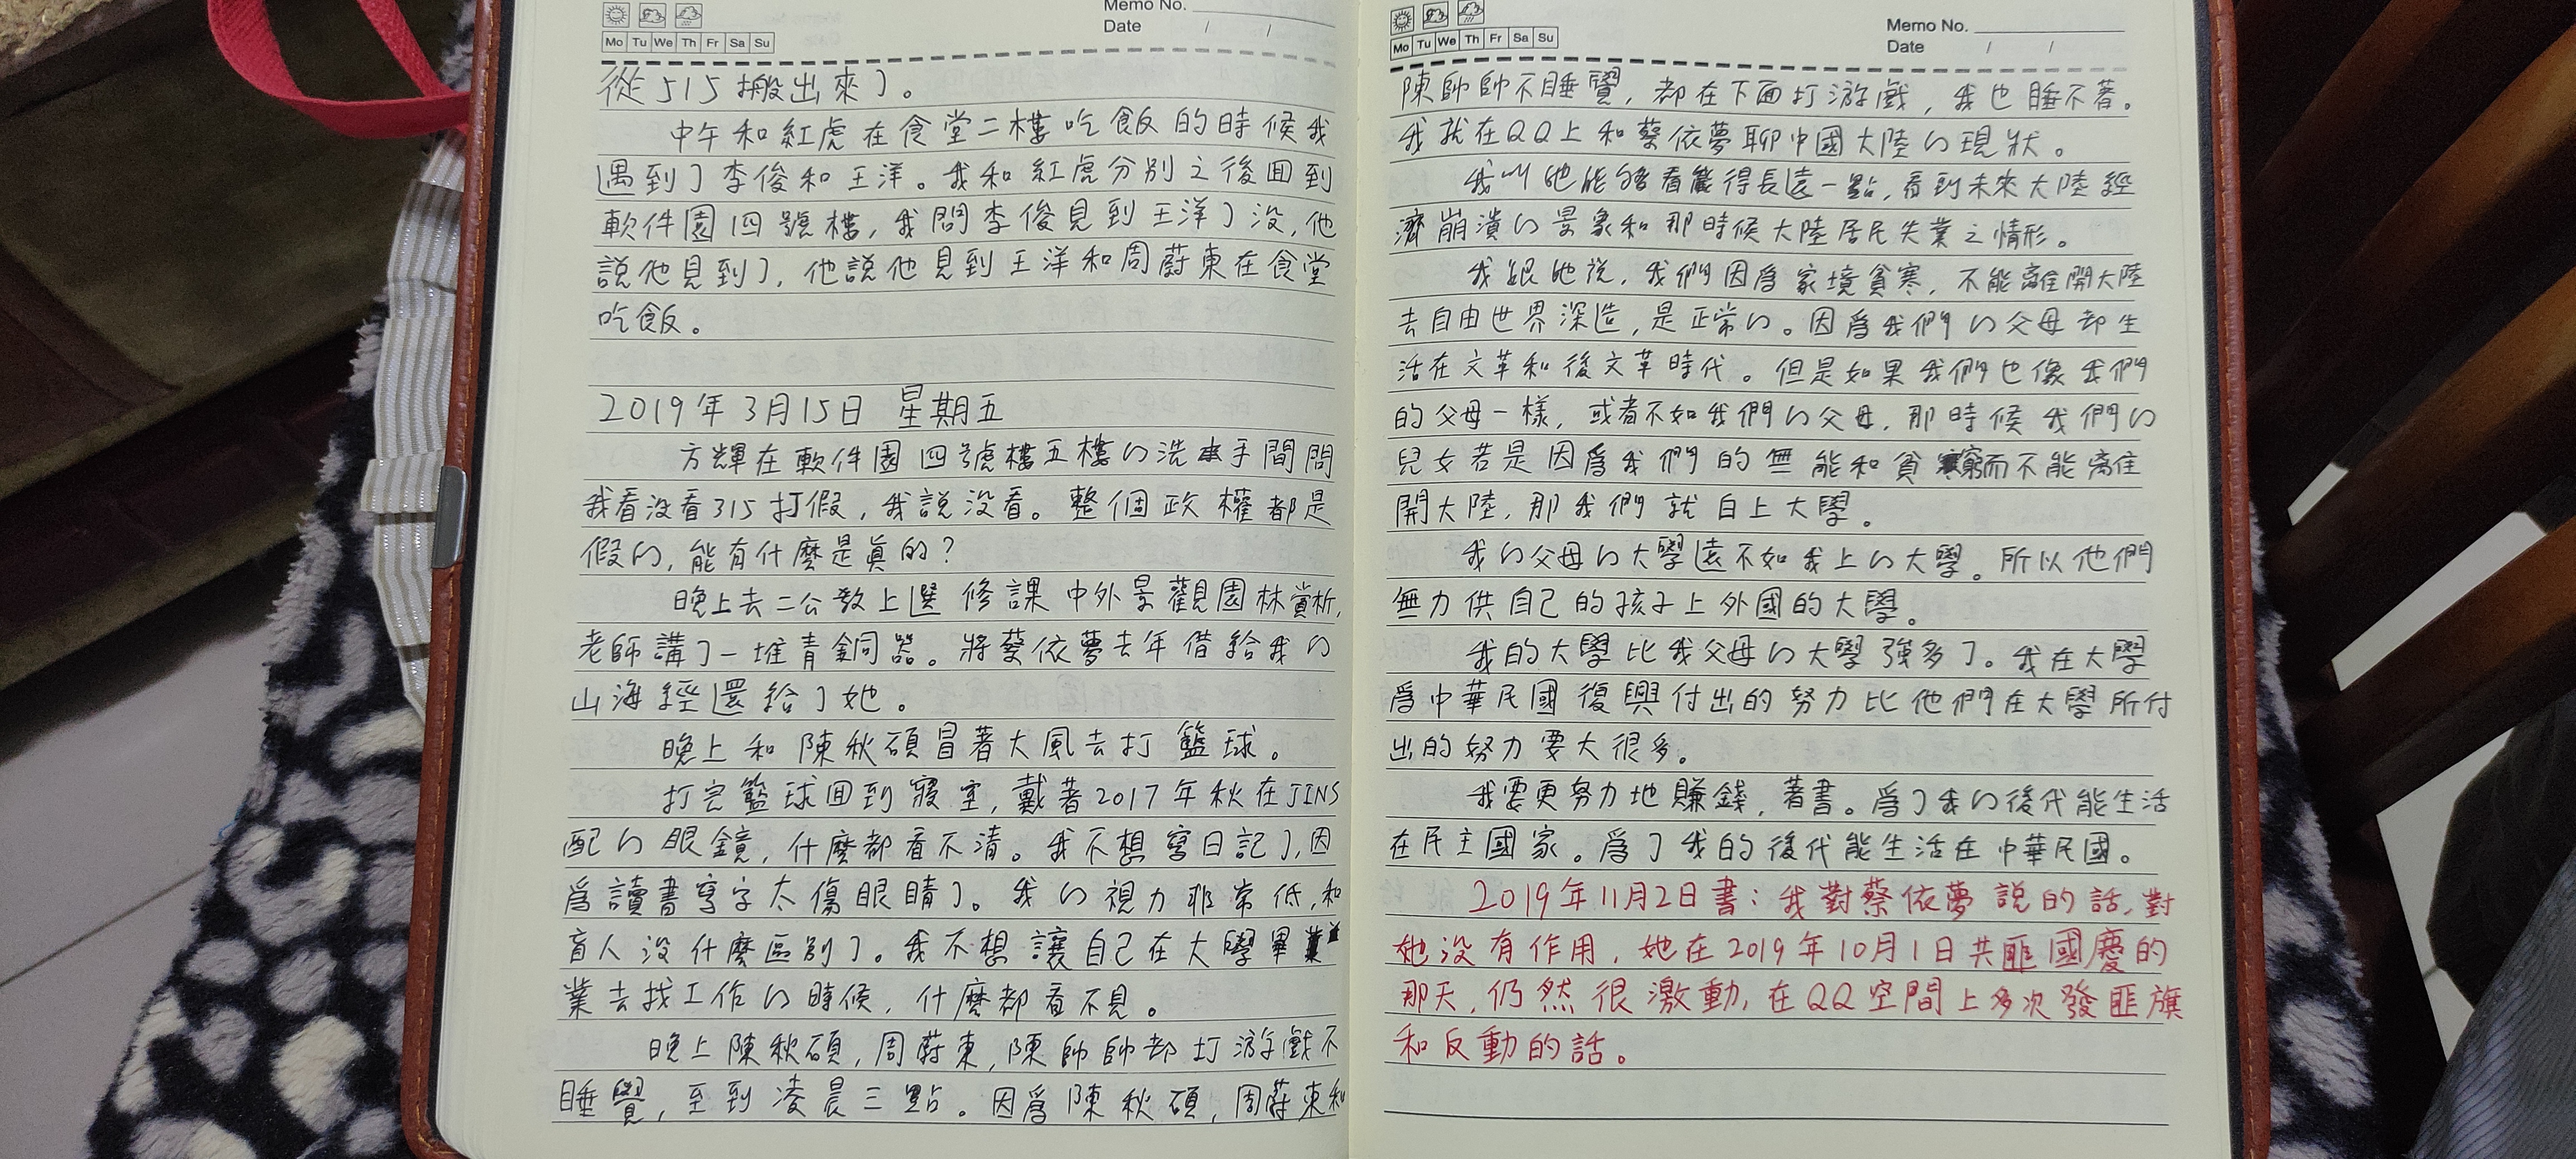 Memo No.
Date / /
Mo Tu We Th Fr Sa Su
從515搬出來了。
中午和紅虎在食堂二樓吃飯的時候我
遇到了李俊和王洋。我和紅虎分別之後回到
軟件園四號樓,我問李俊見到王洋了没,他
說他見到了,他說他見到王洋和周蔚東在食堂
吃飯。
2019年3月15日 星期五
方輝在軟件園四號樓五樓的洗手間問
我看没看315打假,我說没看。整個政權都是
假的,能有什麼是真的?
晚上去二公教上選修課中外景觀園林賞析,
老師講了一堆青銅器。將蔡依夢去年借給我的
山海經還給了她。
晚上和陳秋碩冒著大風去打籃球。
打完籃球回到寢室,戴著2017年秋在JINS
配的眼鏡,什麼都看不清。我不想寫日記了,因
爲讀書寫字太傷眼睛了。我的視力非常低,和
盲人没什麼區別了。我不想讓自己在大學畢
業去找工作的時候,什麼都看不見。
晚上陳秋碩,周蔚東,陳帥帥都打游戲不
睡覺,至到凌晨三點。因爲陳秋碩,周蔚東和
Memo No.
Date / /
Mo Tu We Th Fr Sa Su
陳帥帥不睡覺,都在下面打游戲,我也睡不著。
我就在QQ上和蔡依夢聊中國大陸的現狀。
我叫她能够看得長遠一點,看到未來大陸經
濟崩潰的景象和那時候大陸居民失業之情形。
我跟她説,我們因爲家境貧寒,不能離開大陸
去自由世界深造,是正常的。因爲我們的父母都生
活在文革和後文革時代。但是如果我們也像我們
的父母一樣,或者不如我們的父母,那時候我們的
兒女若是因爲我們的無能和貧窮而不能離
開大陸,那我們就白上大學。
我的父母的大學遠不如我上的大學。所以他們
無力供自己的孩子上外國的大學。
我的大學比我父母的大學強多了。我在大學
爲中華民國復興付出的努力比他們在大學所付
出的努力要大很多。
我要更努力地賺錢,著書。爲了我的後代能生活
在民主國家。爲了我的後代能生活在中華民國。
2019年11月2日書:我對蔡依夢説的話,對
她没有作用,她在2019年10月1日共匪國慶的
那天,仍然很激動,在QQ空間上多次發匪旗
和反動的話。